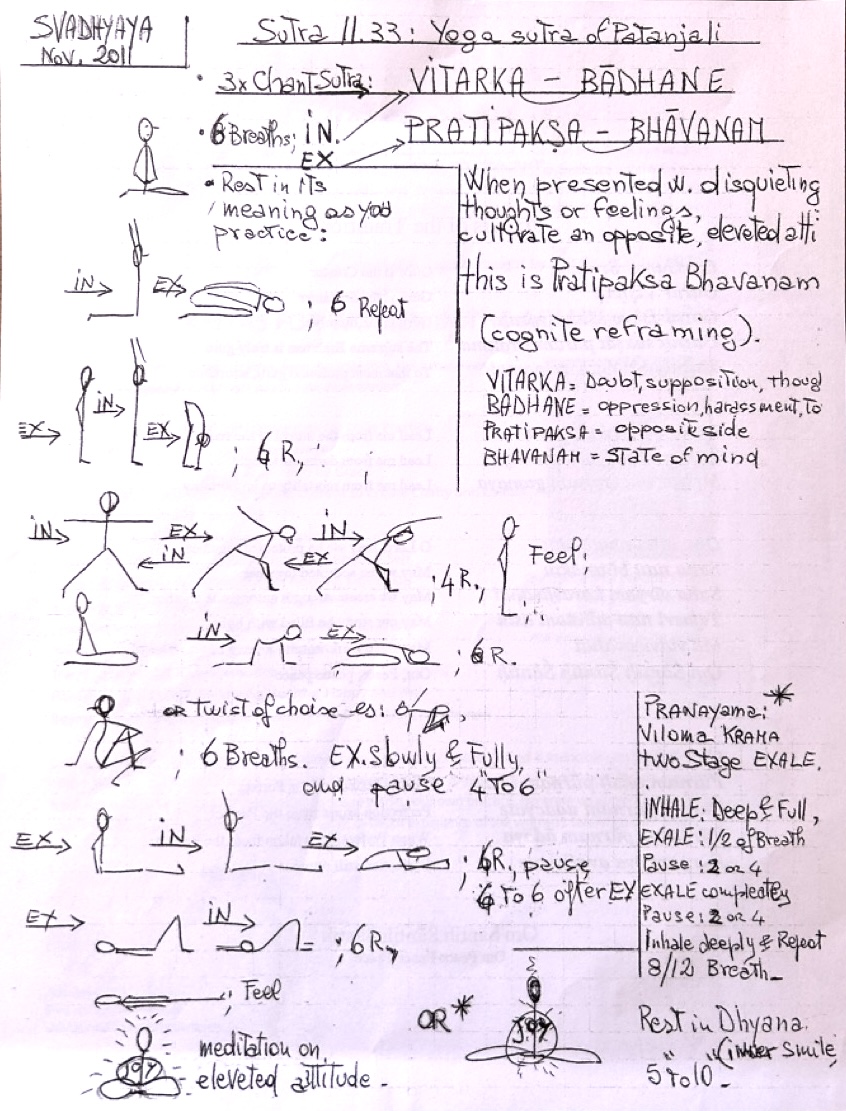 SVADHYAYA
Nov. 2011
Sutra II.33: Yoga sutra of Patanjali
• 3x Chant Sutra: VITARKA – BĀDHANE
• 6 Breaths; IN. PRATIPAKṢA – BHĀVANAM
EX
• Rest in its
meaning as you
practice:
When presented w. disquieting
thoughts or feelings,
cultivate an opposite, eleveted atti
this is Pratipaksa Bhavanam
(cognite reframing).
VITARKA = Doubt, supposition, thoug
BADHANE = oppression, harassment, to
PRATIPAKSA = opposite side
BHAVANAM = State of mind
IN EX ; 6 Repeat
EX IN EX ; 6 R,
IN EX IN EX IN ; 4 R, Feel;
IN EX ; 6 R.
or twist of choixe es:
; 6 Breaths. EX. Slowly & Fully,
and pause "4 To 6"
EX IN EX ; 6R, pause,
4 To 6 after EX
EX IN ; 6R,
; Feel
meditation on
eleveted attitude -
JOY
PRANAYama: *
Viloma KRAMA
two Stage EXALE.
INHALE: Deep & Full,
EXALE: 1/2 of Breath
Pause: 2 or 4
EXALE completley
Pause: 2 or 4
Inhale deeply & Repeat
8/12 Breath_
OR *
JOY
Rest in Dhyana
" " (inner Smile,
5 to 10_